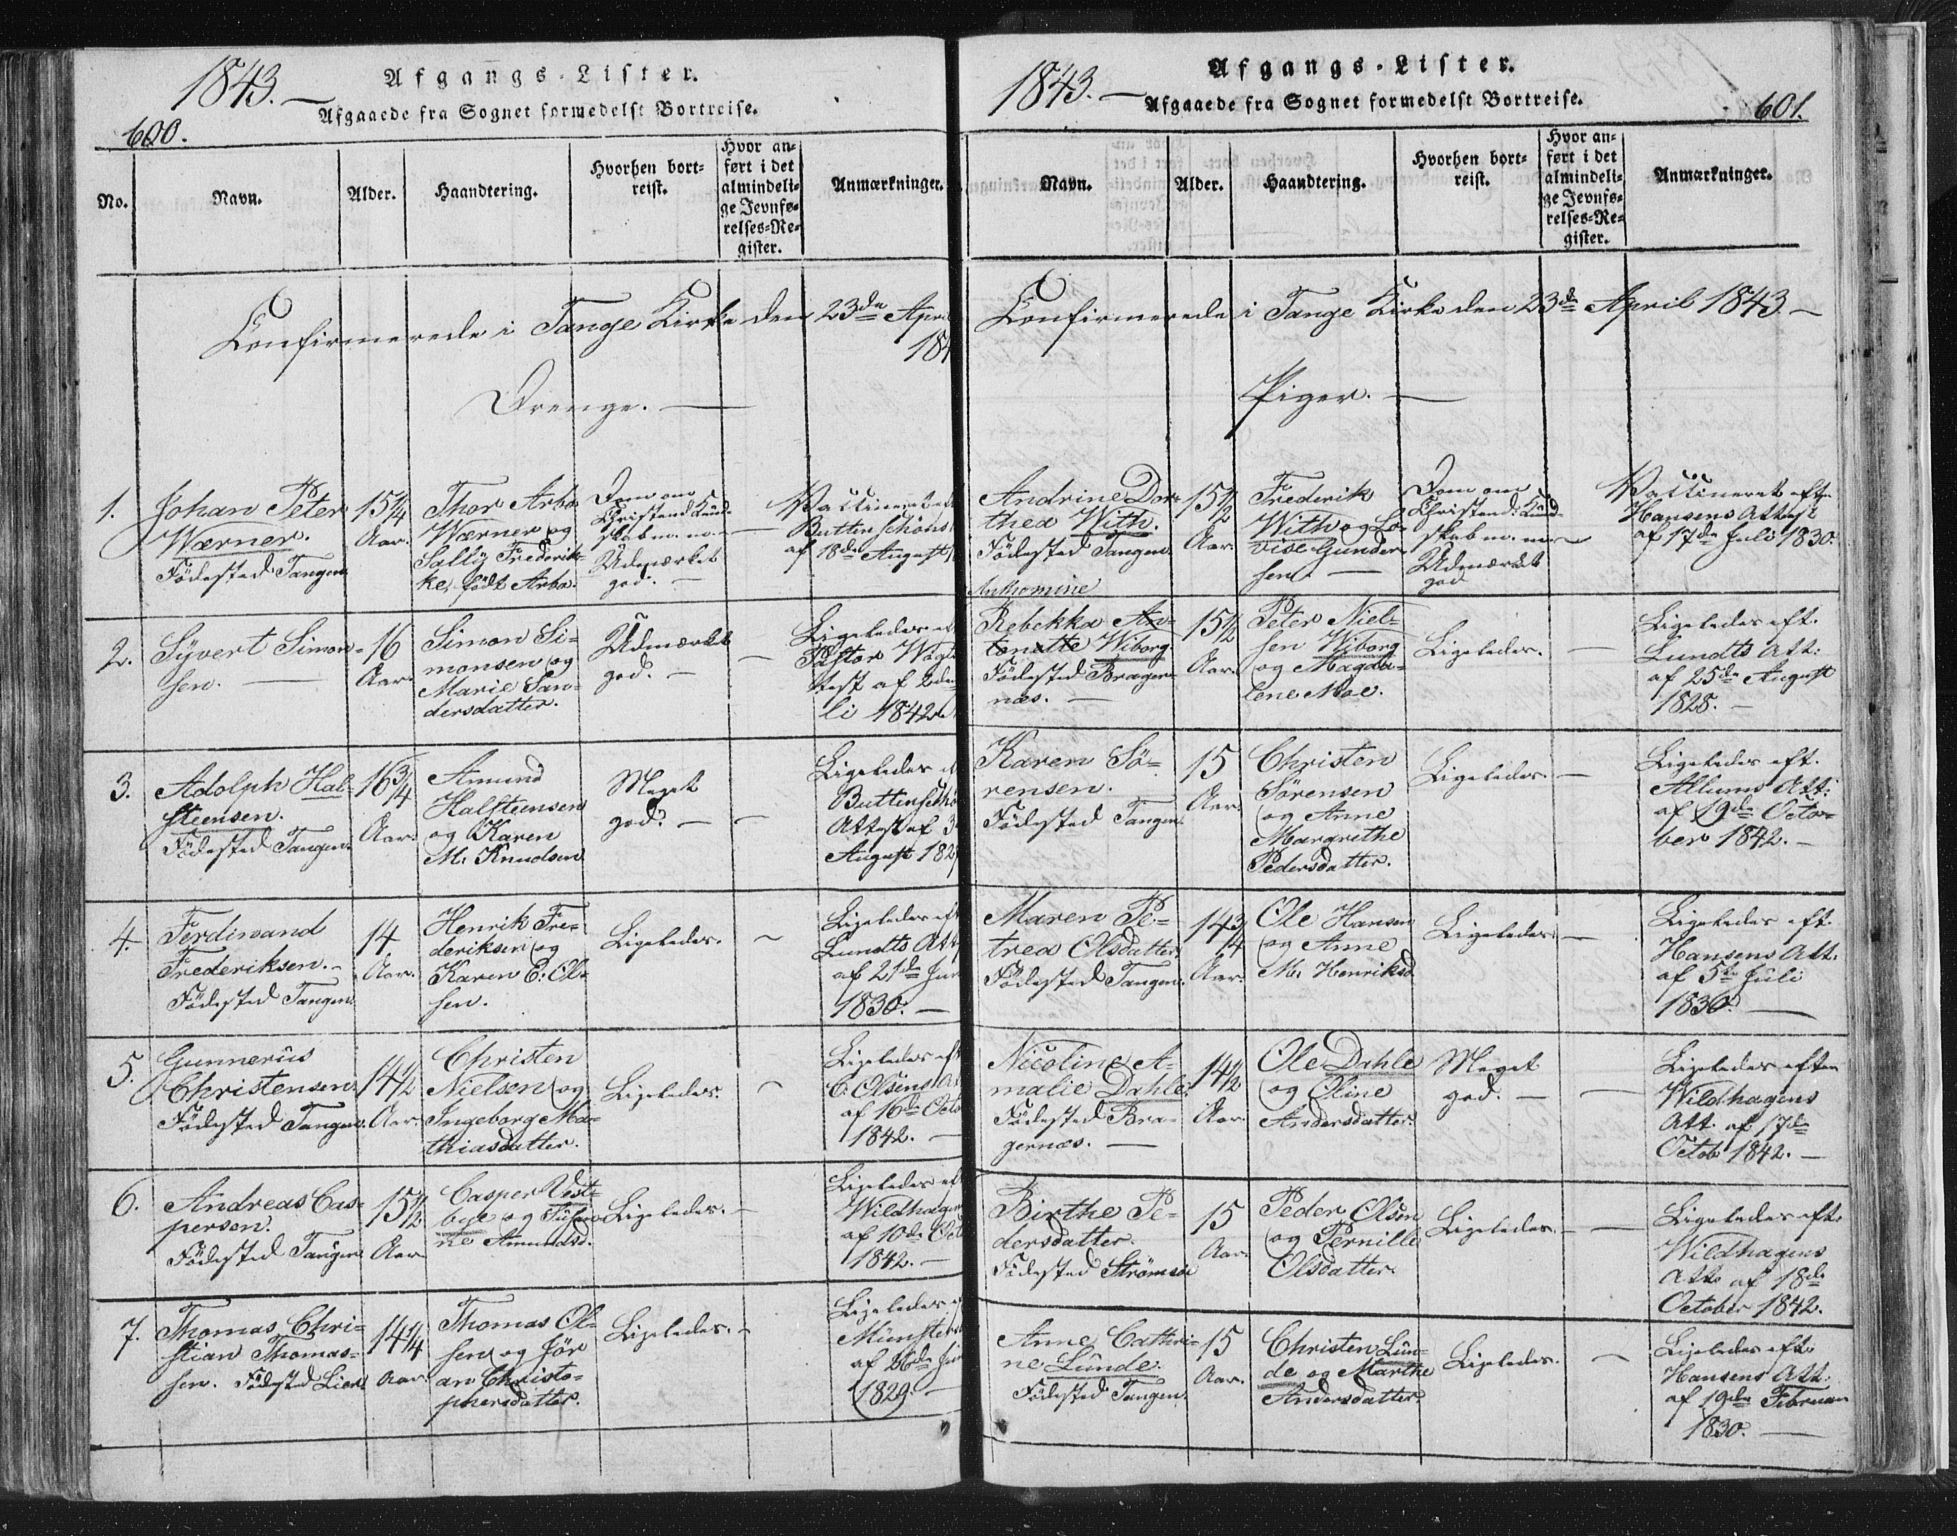 1843. —
Afgangs-Lister.
Afgaaede fra Sognet formedelst Bortreise.
600.
No.
Navn.
Alder.
Haandtering.
Hvorhen bort-
reist.
Hvor an-
ført i det
almindeli-
ge Jevnfø-
relses-Re-
gister.
Anmærkninger.
Confirmerede i Tange Kirke den 23de Apri
184
Drenge. —
1.
Johan Peter
Wærner.
Födested Tangen
15 1/4
Aar.
Thor Arbo
Wærner og
Sally Frederik-
ke, født Arbo.
Dom om
Christend. Kund-
skab m. m.
Udmærket
god. —
—
Vaccineret eft
Buttenschöns
af 18de August
2.
Syvert Simon-
sen. —
16
Aar.
Simon Si-
monsen og
Marie San-
dersdatter.
Udmærket
god. —
—
Ligeledes eft
Pastor
test af 2den
li 1842.
3.
Adolph Hal-
steensen.
Födested Tangen.
16 3/4
Aar.
Amund
Halsteensen
og Karen
M. Knudsen
Meget
god. —
—
Ligeledes
Buttenschö
Attest af 3
August 182
4.
Ferdinand
Frederiksen. —
Födested Tangen
14
Aar.
Henrik Fre-
deriksen og
Karen E. Ol-
sen.
Ligeledes.
—
Ligeledes eft
Lundts Att
af 21de Jun
1830. —
5.
Gunnerus
Christensen.
Födested Tangen.
14 1/2
Aar.
Christen
Nielsen og
Ingeborg Ma-
thiasdatter.
Ligeledes.
—
Ligeledes eft
C. Olsens At
af 16de Octo
1842. —
6.
Andreas Cas-
persen.
Födested Tangen
15 1/2
Aar
Casper Vest-
bye og
ne Amundsd.
Ligeledes. —
Ligeledes eft
Wildhagen
af 10de Oct
1842. —
7.
Thomas Chri-
stian Thomas-
sen. Födested Lier
14 1/4
Aar
Thomas Ol-
sen og Jör
an Christo-
phersdatter.
Ligeledes. —
Ligeledes
Münster
af 26de Ju
1829. —
1843. —
Afgangs-Lister.
Afgaaede fra Sognet formedelst Bortreise.
601.
Navn.
Alder.
Haandtering.
Hvorhen bort-
reist.
Hvor an-
ført i det
almindeli-
ge Jevnfø-
relses-Re-
gister.
Anmærkninger.
Confirmerede i Tange Kirke den 23de April 1843. —
Piger. —
Andrine Dor-
thea With.
Födested Tangen
15 1/2
Aar.
Frederik
With og Lo-
vise Gunder-
sen. —
Dom om
Christend. Kund-
skab m. m.
Udmærket
god
—
Vaccineret eft.
Hansens Attest
af 17de Juli 1830.
Anthomine
Rebekka An-
tonette Wiborg.
Födested Brager-
næs. —
15 1/2
Aar.
Peter Niel-
sen Wiborg
og Magda-
lene Moe.
Ligeledes.
—
Ligeledes eft.
Lundts Att:
af 25de August
1828. —
Karen Sö-
rensen.
Födested Tangen.
15
Aar.
Christen
Sörensen
og Anne
Margrethe
Pedersdatter.
Ligeledes.
—
Ligeledes eft.
Allums Att:
af 19de Octo-
ber 1842. —
Maren Pe-
trea Olsdatter.
Födested Tangen.
14 3/4
Aar.
Ole Hansen
og Anne
M. Henriksd
Ligeledes.
—
Ligeledes eft.
Hansens Att.
af 5te Juli
1830. —
Nicoline A-
malie Dahle.
Födested Bra-
gernæs. —
14 1/2
Aar.
Ole Dahle
og Oline
Andersdatter.
Meget
god. —
—
Ligeledes efter
Wildhagens
Att. af 17de
Octob 1842. —
Birthe Pe-
dersdatter.
Födested Strömsoe
15
Aar.
Peder Olsen
og Pernille
Olsdatter.
Ligeledes.
—
Ligeledes eft.
Wildhagens
Att. af 18de
October 1842.
Anne Cathri-
ne Lunde.
Födested Tangen.
15
Aar.
Christen Lun-
de og Marthe
Andersdatter.
Ligeledes.
—
Ligeledes eft.
Hansens Att.
af 19de Februar
1830. —